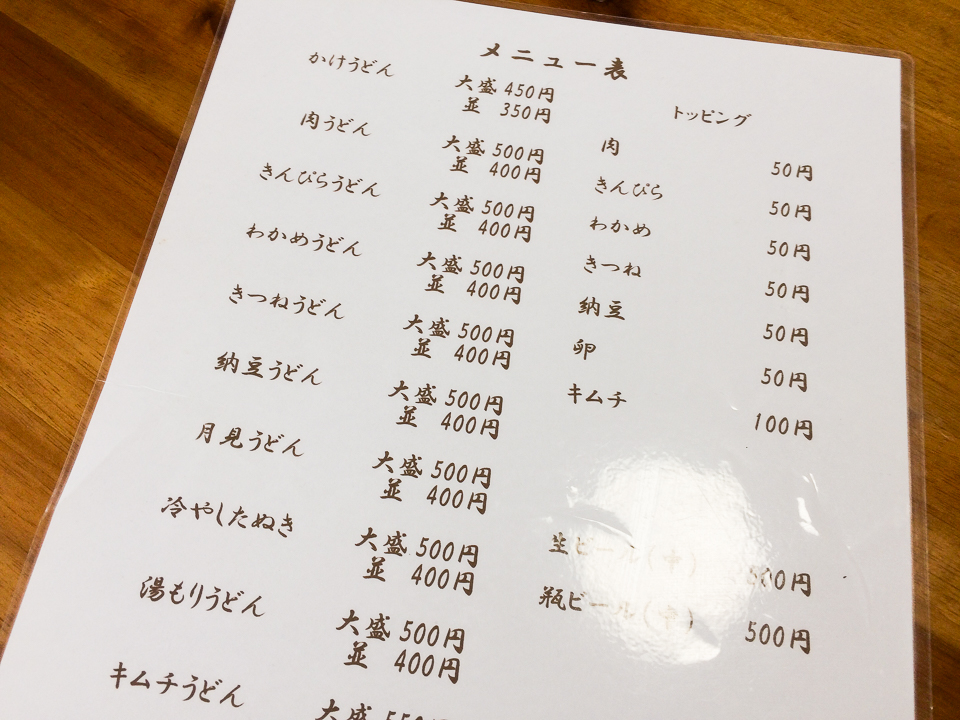 メニュー表
かけうどん
大盛 450円
並 350円
肉うどん
大盛 500円
並 400円
きんぴらうどん
大盛 500円
並 400円
わかめうどん
大盛 500円
並 400円
きつねうどん
大盛 500円
並 400円
納豆うどん
大盛 500円
並 400円
月見うどん
大盛 500円
並 400円
冷やしたぬき
大盛 500円
並 400円
湯もりうどん
大盛 500円
並 400円
キムチうどん
大盛
トッピング
肉 50円
きんぴら 50円
わかめ 50円
きつね 50円
納豆 50円
卵 50円
キムチ 100円
生ビール(中)
瓶ビール(中) 500円